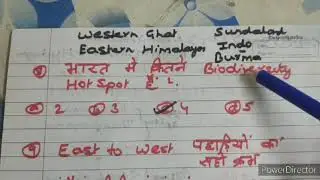 Western Ghat Sundaland
Eastern Himalaya Indo
Burma
⑧ भारत में कितने Biodiversity
Hot Spot हैं
ⓐ 2 ⓑ 3 ⓒ 4 ⓓ 5
⑨ East to West पहाड़ियों का
सही क्रम
PowerDirector